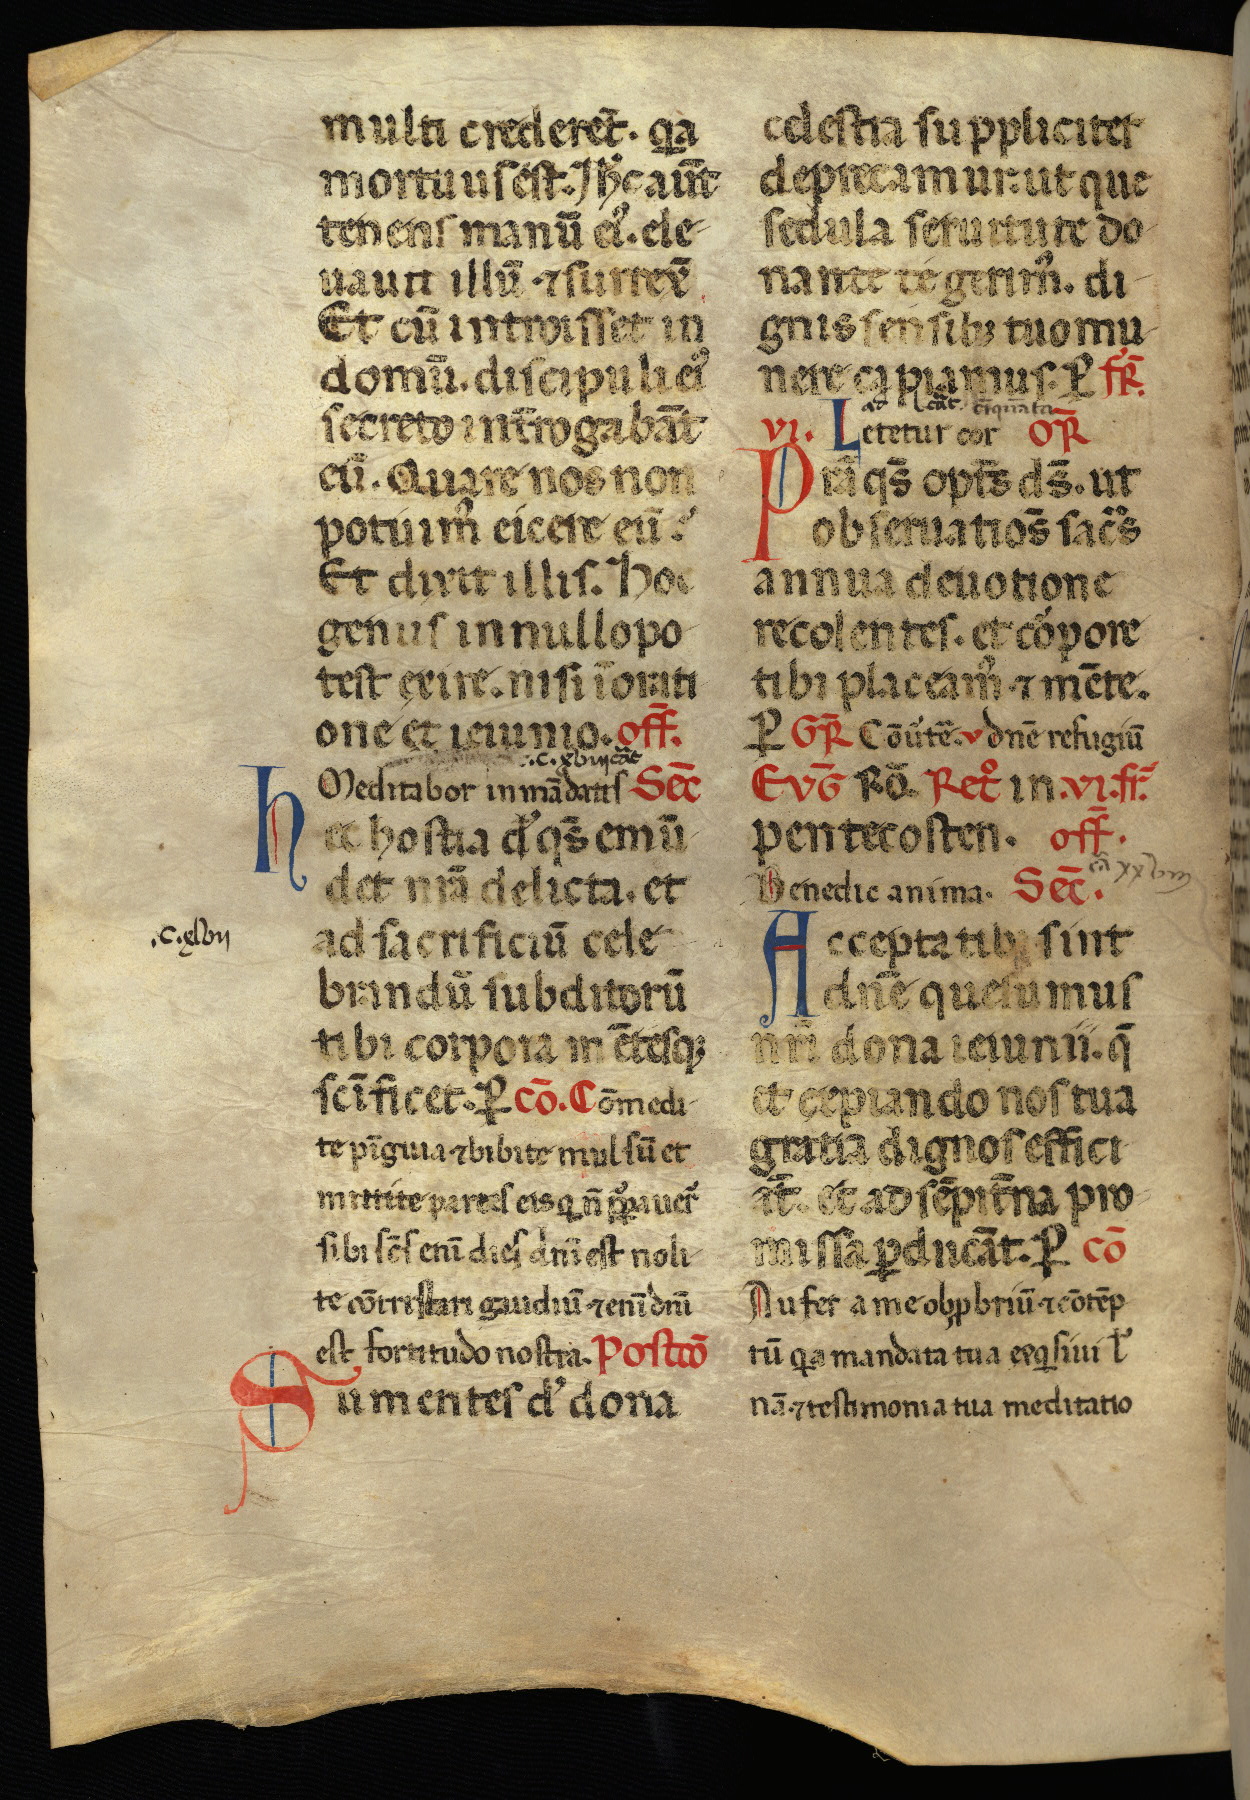 multi crederēt. qa
mortuus ēst. Jhc aūt
tenens manū ei9. ele
uauit illū ⁊ surrex̄
Et cū introisset in
domū. discipuli ei9
secreto int̄rogabāt
eū. Quare nos non
potuim9 eicere eū?
Et dixit illis. Hoc
genus in nullo po
test exire. nisi ī orati
one et ieiunio. off̄.
.c.xlviij cāt
Meditabor in mādatis Sēc
hec hostia d9 qs̄ emū
det nrā delicta. et
.c.xlvij
ad sacrificiū cele
brandū subditorū
tibi corpora mētesq;
scīficet. ꝑ cō. Cōmedi
te pīguia ⁊ bibite mulsū et
mittite partes eis q nō p̄pauer̄
sibi scs̄ eni dies dni est noli
te cōtristari gaudiū ⁊ enī dnī
est fortitudo nostra. Postcō
Sumentes d9 dona
celestia suppliciter
deprecamur: ut que
sedula seruitute do
nante te gerim9. di
gnis sensib; tuo mu
nere capiamus. ꝑ fr̄.
ad
vi. Letetur cor or̄
Prā qs̄ opt̄s ds̄. ut
obseruatiōs sac̄s
annua deuotione
recolentes. et cōpore
tibi placeam9 ⁊ mēte.
ꝑ Gr̄ Cōuˀtē. v dnē refugiū
Evḡ Rō. Ret° in .vi. fr̄
pentecosten. off̄.
Benedic anima. Sēc.
xxviij
Accepta tibi sint
dn̄e quesumus
nr̄i dona ieiunii. q̄
et expiando nos tua
gratia dignos effici
at. et ad sēpitna pro
missa ꝑducāt. ꝑ cō
Aufer a me obp̄briū ⁊ cōtēp
tū qa mandata tua exqsiui d9
nā ⁊ testimonia tua meditatio